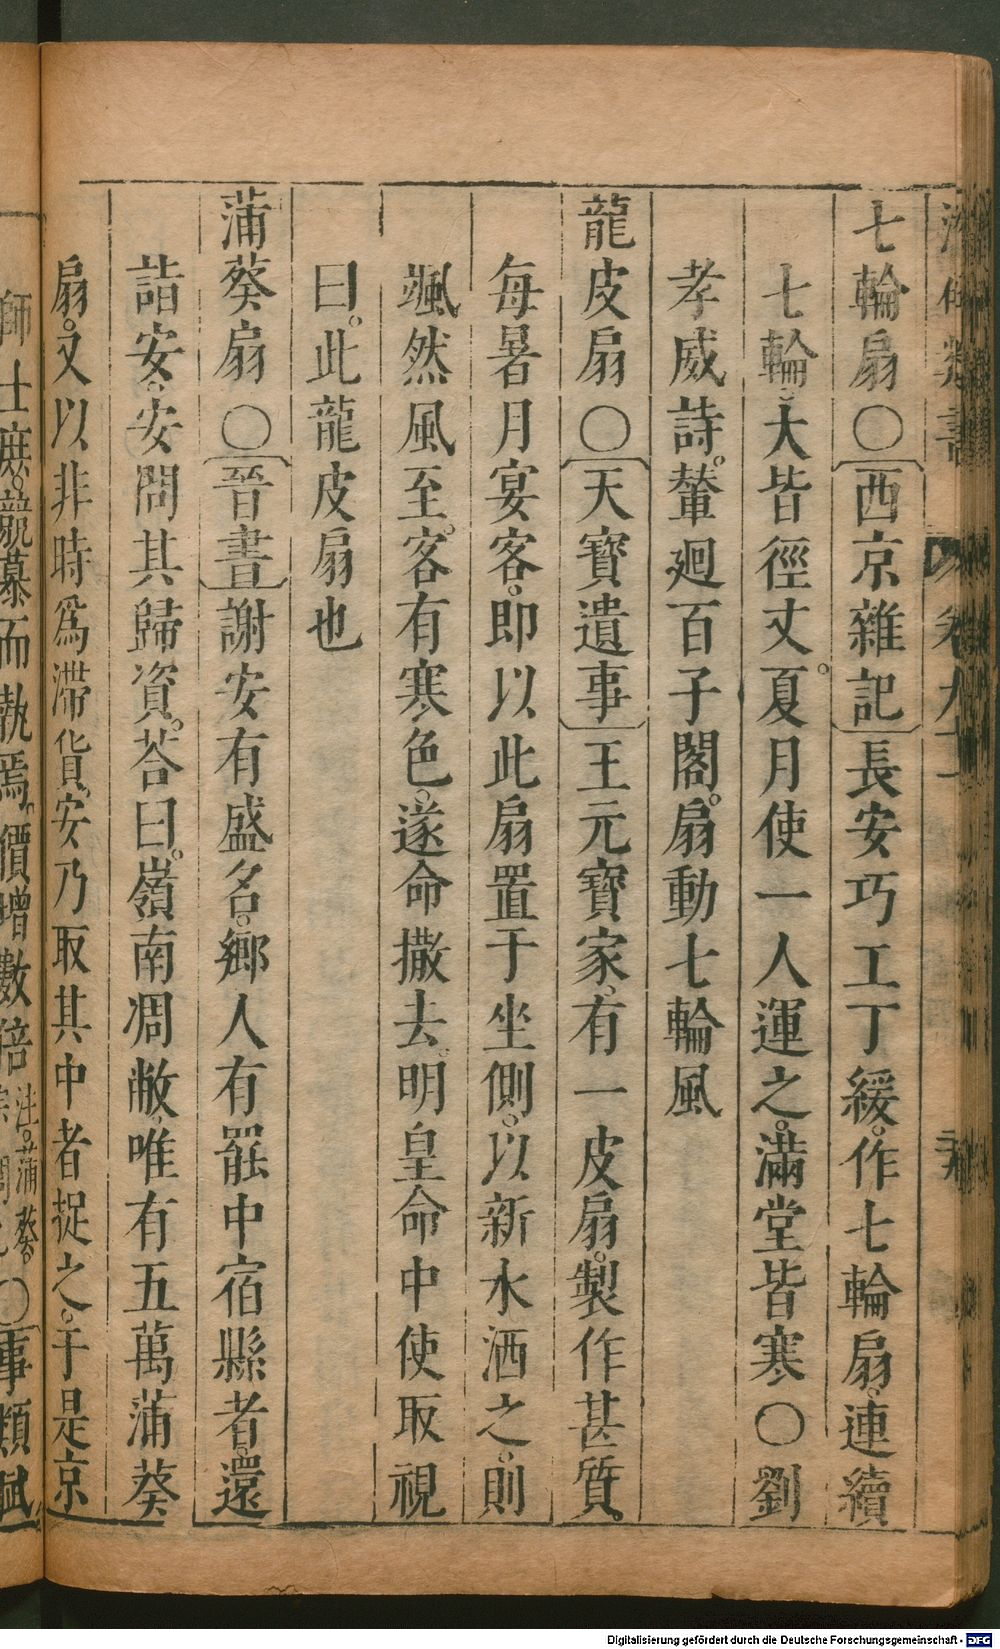 七輪扇○〔西京雜記〕長安巧工丁緩。作七輪扇、連續
七輪、大皆徑丈。夏月使一人運之。滿堂皆寒○劉
孝威詩。輦廻百子閣。扇動七輪風
龍皮扇○〔天寶遺事〕王元寶家。有一皮扇。製作甚質。
每暑月宴客。即以此扇置于坐側。以新水洒之。則
颯然風至。客有寒色。遂命撒去。明皇命中使取視
曰。此龍皮扇也
蒲葵扇○〔晉書〕謝安有盛名。鄉人有罷中宿縣者。還
詣安。安問其歸資。荅曰。嶺南凋敝、唯有五萬蒲葵
扇。又以非時爲滯貨。安乃取其中者捉之。于是京
師士庶。競慕而執焉。價增數倍 注。蒲葵。○〔事類賦
Digitalisierung gefördert durch die Deutsche Forschungsgemeinschaft - DFG